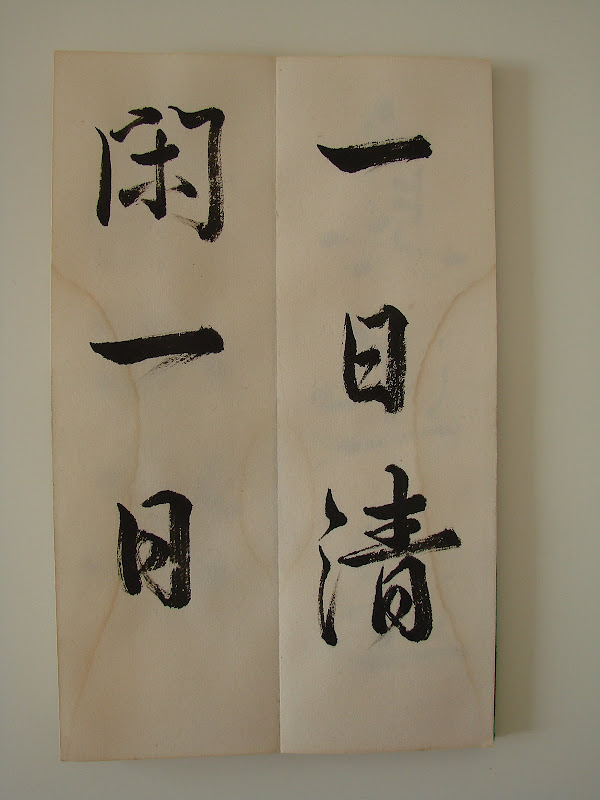 一日清
閑一日